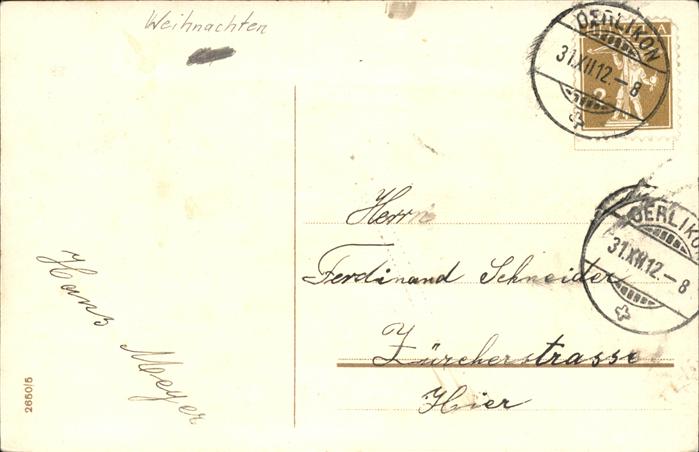 Weihnachten
OERLIKON
31.XII.12.-8
2
Herrn
Ferdinand Schneider
Zürcherstrasse
Hier
OERLIKON
31.XII.12.-8
Hans Meyer
2650/5